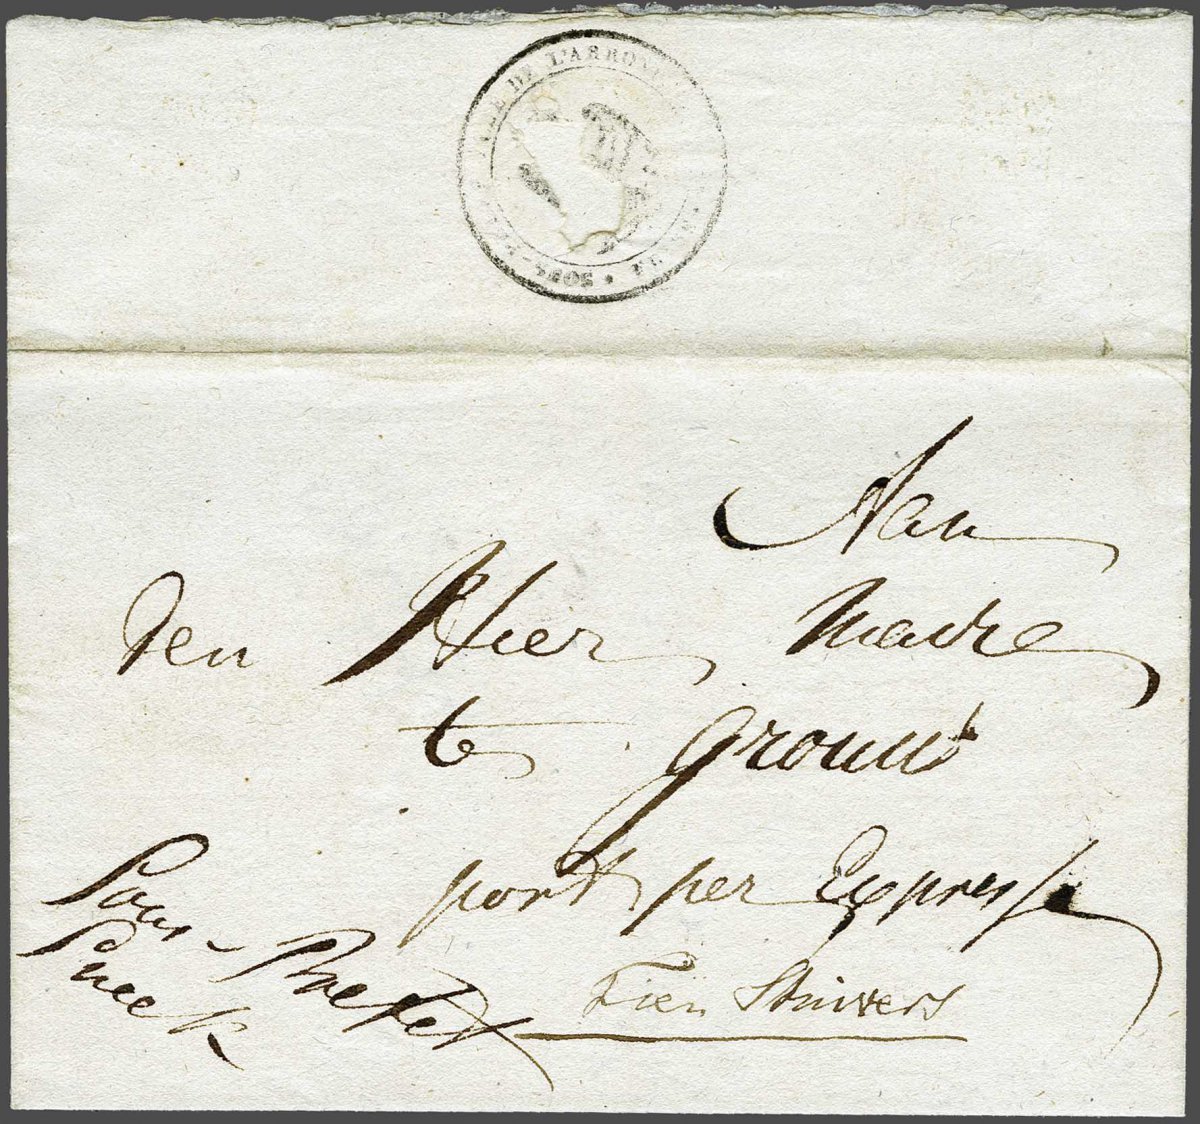 DE L'ARRO
SOUS-PRE
Aan
den Heer Maire
te Grouw
port per Expresse
Tien Stuivers
Sous-Prefet
Sneek